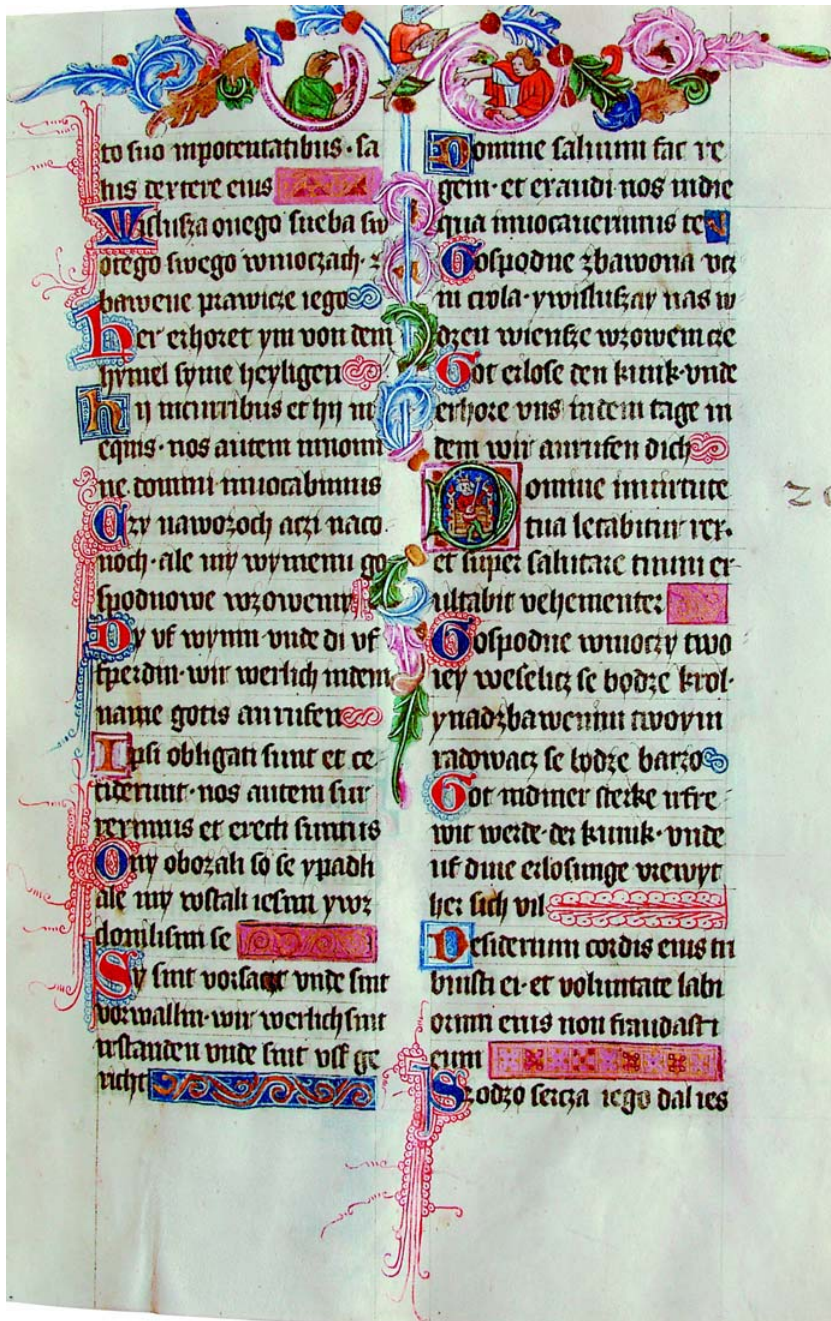 to suo inpotentatibus · sa
lus dextere eius
Wislusza onego sneba sw
ötego swego wmoczach · z
bawene prawicze iego
her erhoret ym von dem
hymel syme heyligen
hij in curribus et hij in
equis · nos autem innomi
ne domini inuocabimus
Czy nawozoch aczi naco
noch · ale my wymenu go
spodnowe wzowemy
Dy vf wynin vnde di vf
sperdin · wir werlich indem
name gotis anrufen
Ipsi obligati sunt et ce
ciderunt · nos autem sur
reximus et erecti sumus
Ony obozali so se ypadli
ale my wstali iesmi ywz
donilismi se
Sy sint vorsaczt vnde sint
vorwallin · wir werlich sint
irstanden vnde sint vff ge
richt
Domine saluum fac re
gem · et exaudi nos indie
qua inuocauerimus te
Gospodne zbawona vcz
ni crola · ywisluszay nas w
dzen wiensze wzowem cze
Got erlose den kunik · vnde
erhore vns indem tage in
dem wir anrufen dich
Domine inuirtute
tua letabitur rex ·
et super salutare tuum ex
ultabit vehementer
Gospodne wmoczy two
iey weselicz se bodze krol ·
ynadzbawenim twoym
radowacz se bodze barzo
Got indiner sterke ufre
wit werde · der kunik · vnde
uf dine erlosunge vrewyt
her sich vil
Desiderium cordis eius tri
buisti ei · et voluntate labi
orum eius non fraudasti
eum
Szodzo sercza iego dal ies